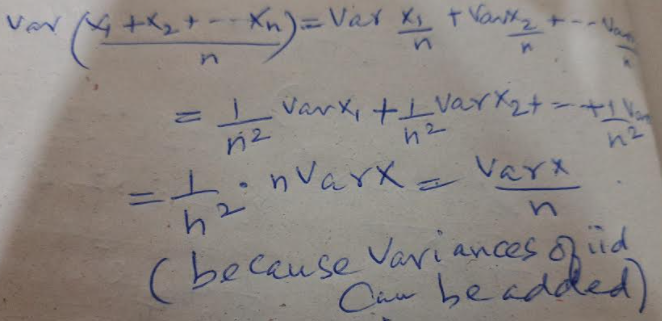 Var (x₁ + x₂ + --- xₙ / n) = Var x₁/n + Var x₂/n + ---
= 1/n² Var x₁ + 1/n² Var x₂ + -- + 1/n² Va
= 1/n² · n Var x = Var x / n
(because Variances of iid
Can be added)